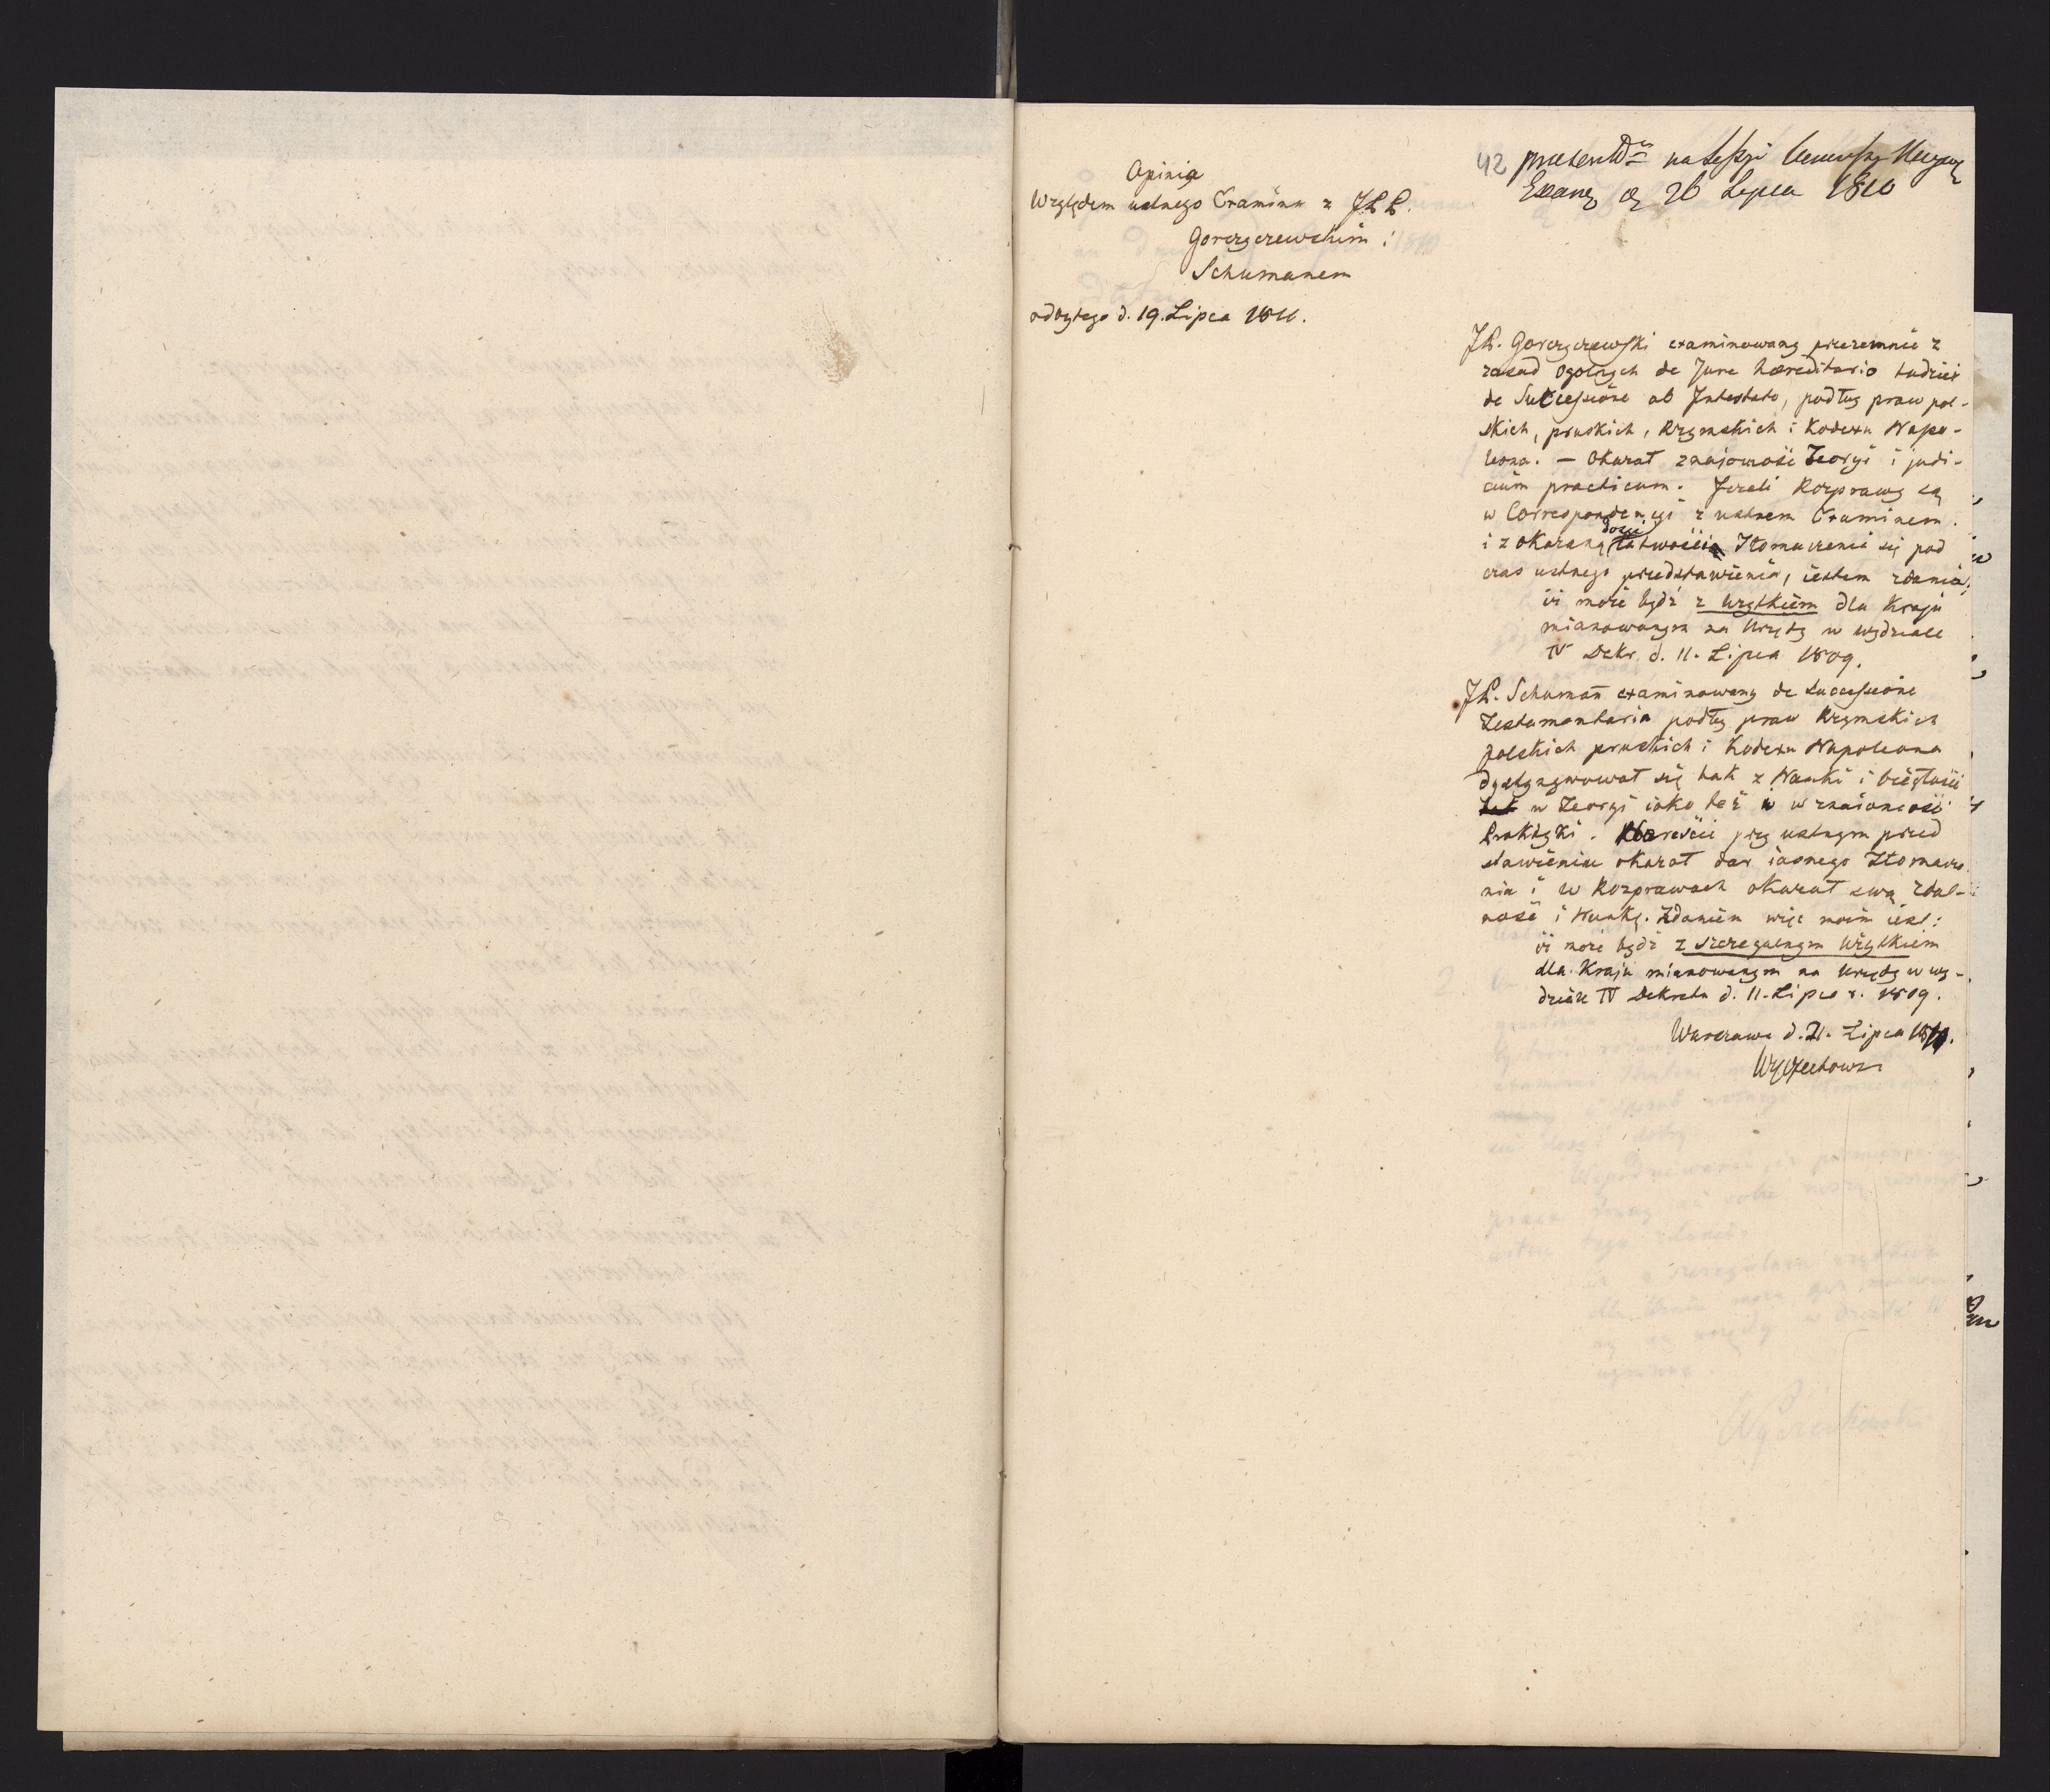 Opinia
Względem ustnego Examinu z JPP.
Gorczyczewskim i
Schumanem
odbytego d. 19. Lipca 1810.
42 praesentd na Sessyi Kommissyi
Exam d 26 Lipca 1810
JP. Gorczyczewski examinowany przezemnie z
zasad ogolnych de Jure haereditario tudzież
de Successione ab Intestato, podług praw pol-
skich, pruskich, Rzymskich i Kodexu Napo-
leona. — Okazał znaiomość Teoryi i judi-
cium practicum. Jeżeli Rozprawy są
w Correspondencyi z ustnem Examinem.
i z okazaną dosyć łatwością Tłomaczenia się pod
czas ustnego przedstawienia, iestem zdania;
iż może bydź z użytkiem dla Kraju
mianowanym na Urzędy w wydziale
IV Dekr. d. 11. Lipca 1809.
JP. Schuman examinowany de successione
Testamentaria podług praw Rzymskich
polskich pruskich i Kodexu Napoleona
dystyngwował się tak z Nauki i biegłości
tak w Teoryi iako też w w znaiomości
Praktyki. Nareście przy ustnym przed
stawieniu okazał dar iasnego Tłomacze
nia i w Rozprawach okazał swą zdal-
ność i Naukę. Zdaniem więc moim iest:
iż może bydź z szczegulnym Użytkiem
dla Kraju mianowanym na Urzędy w wy-
dziale IV Dekretu d. 11. Lipca r. 1809.
Warszawa d. 21. Lipca 1810.
Wyczechowski